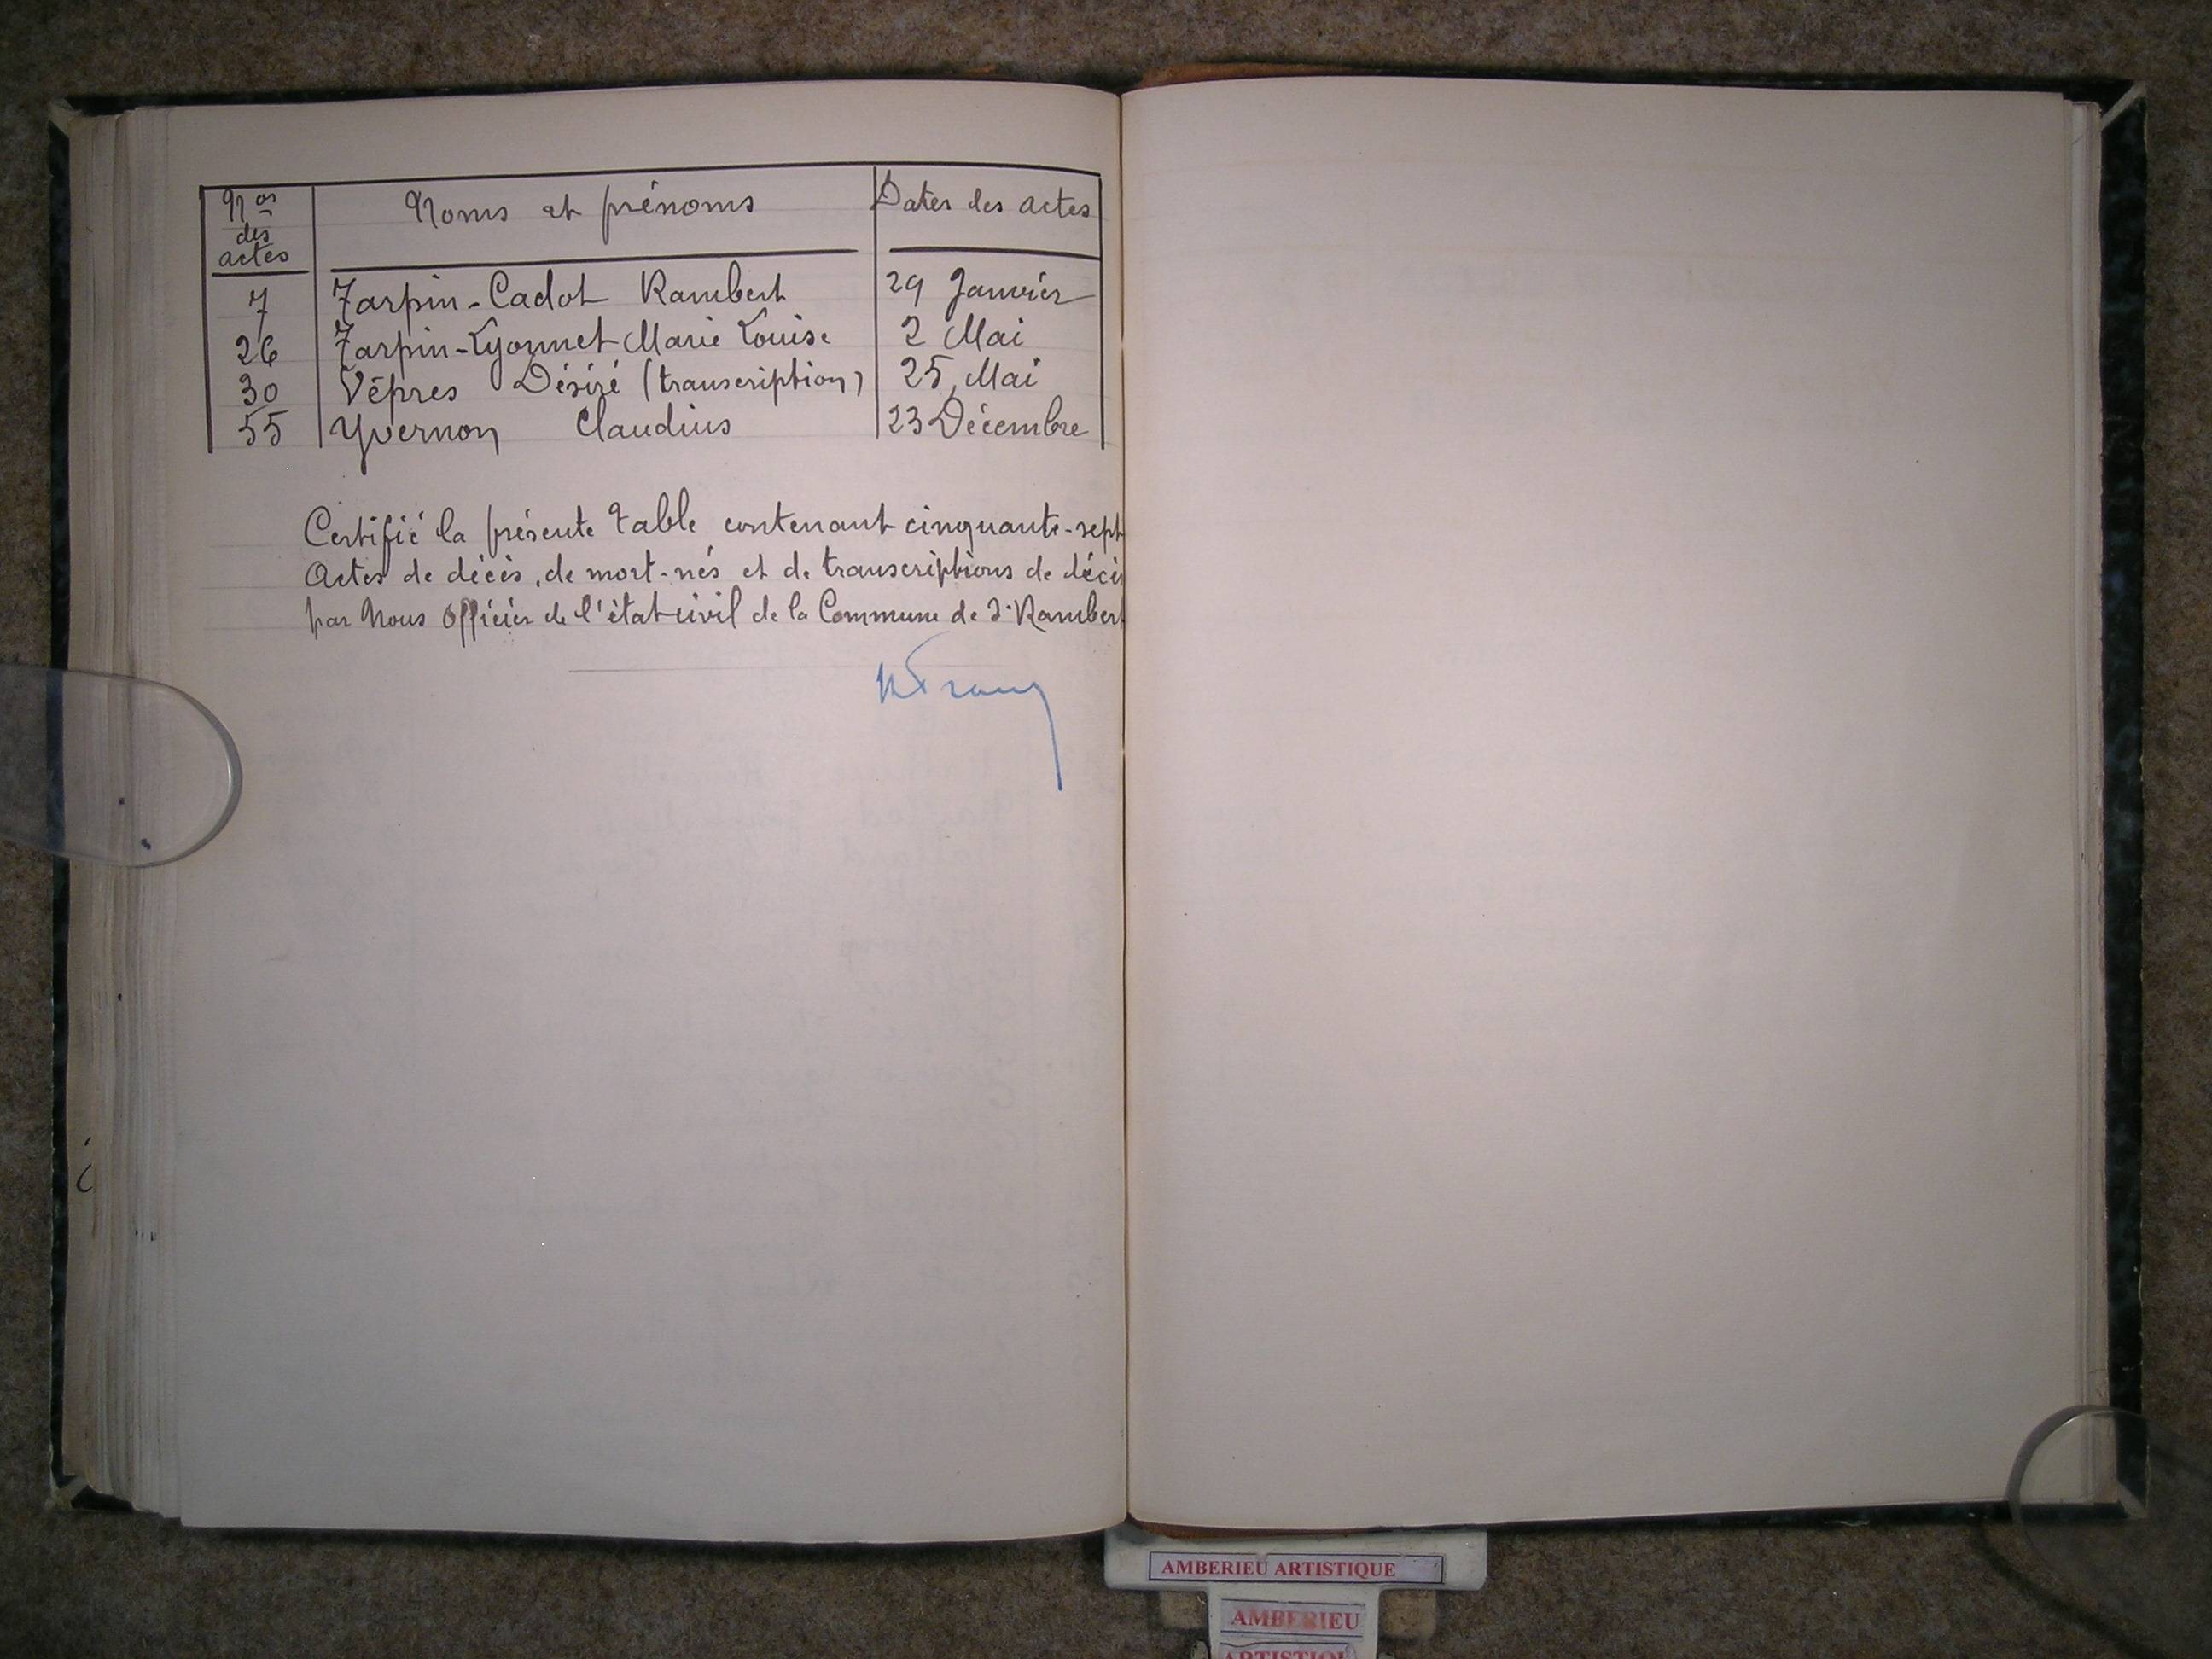 Nos des actes | Noms et prénoms | Dates des actes
7 | Tarpin-Cadot Rambert | 29 Janvier
26 | Tarpin-Lyonnet Marie Louise | 2 Mai
30 | Vêpres Désiré (transcription) | 25 Mai
55 | Yvernon Claudius | 23 Décembre
Certifié la présente table contenant cinquante-sept
Actes de décès, de mort-nés et de transcriptions de décès
par Nous Officier de l'état civil de la Commune de St Rambert
AMBERIEU ARTISTIQUE
AMBERIEU
ARTISTIQU